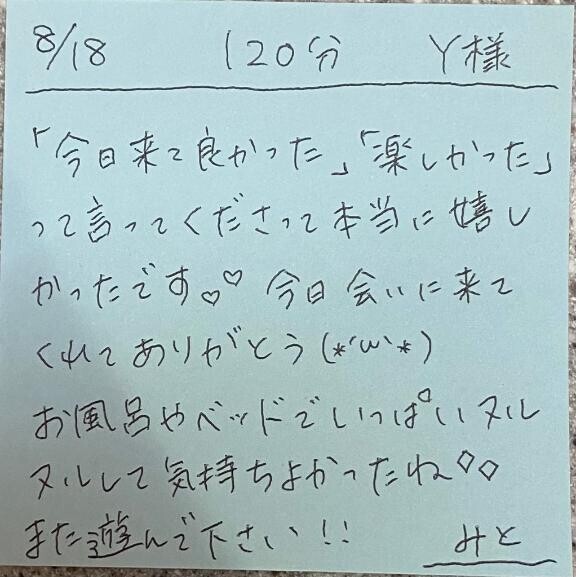 8/18 120分 Y様
「今日来て良かった」「楽しかった」
って言ってくださって本当に嬉し
かったです♡♡ 今日会いに来て
くれてありがとう(*´ω`*)
お風呂やベッドでいっぱいヌル
ヌルして気持ちよかったね♡♡
また遊んで下さい!! みと